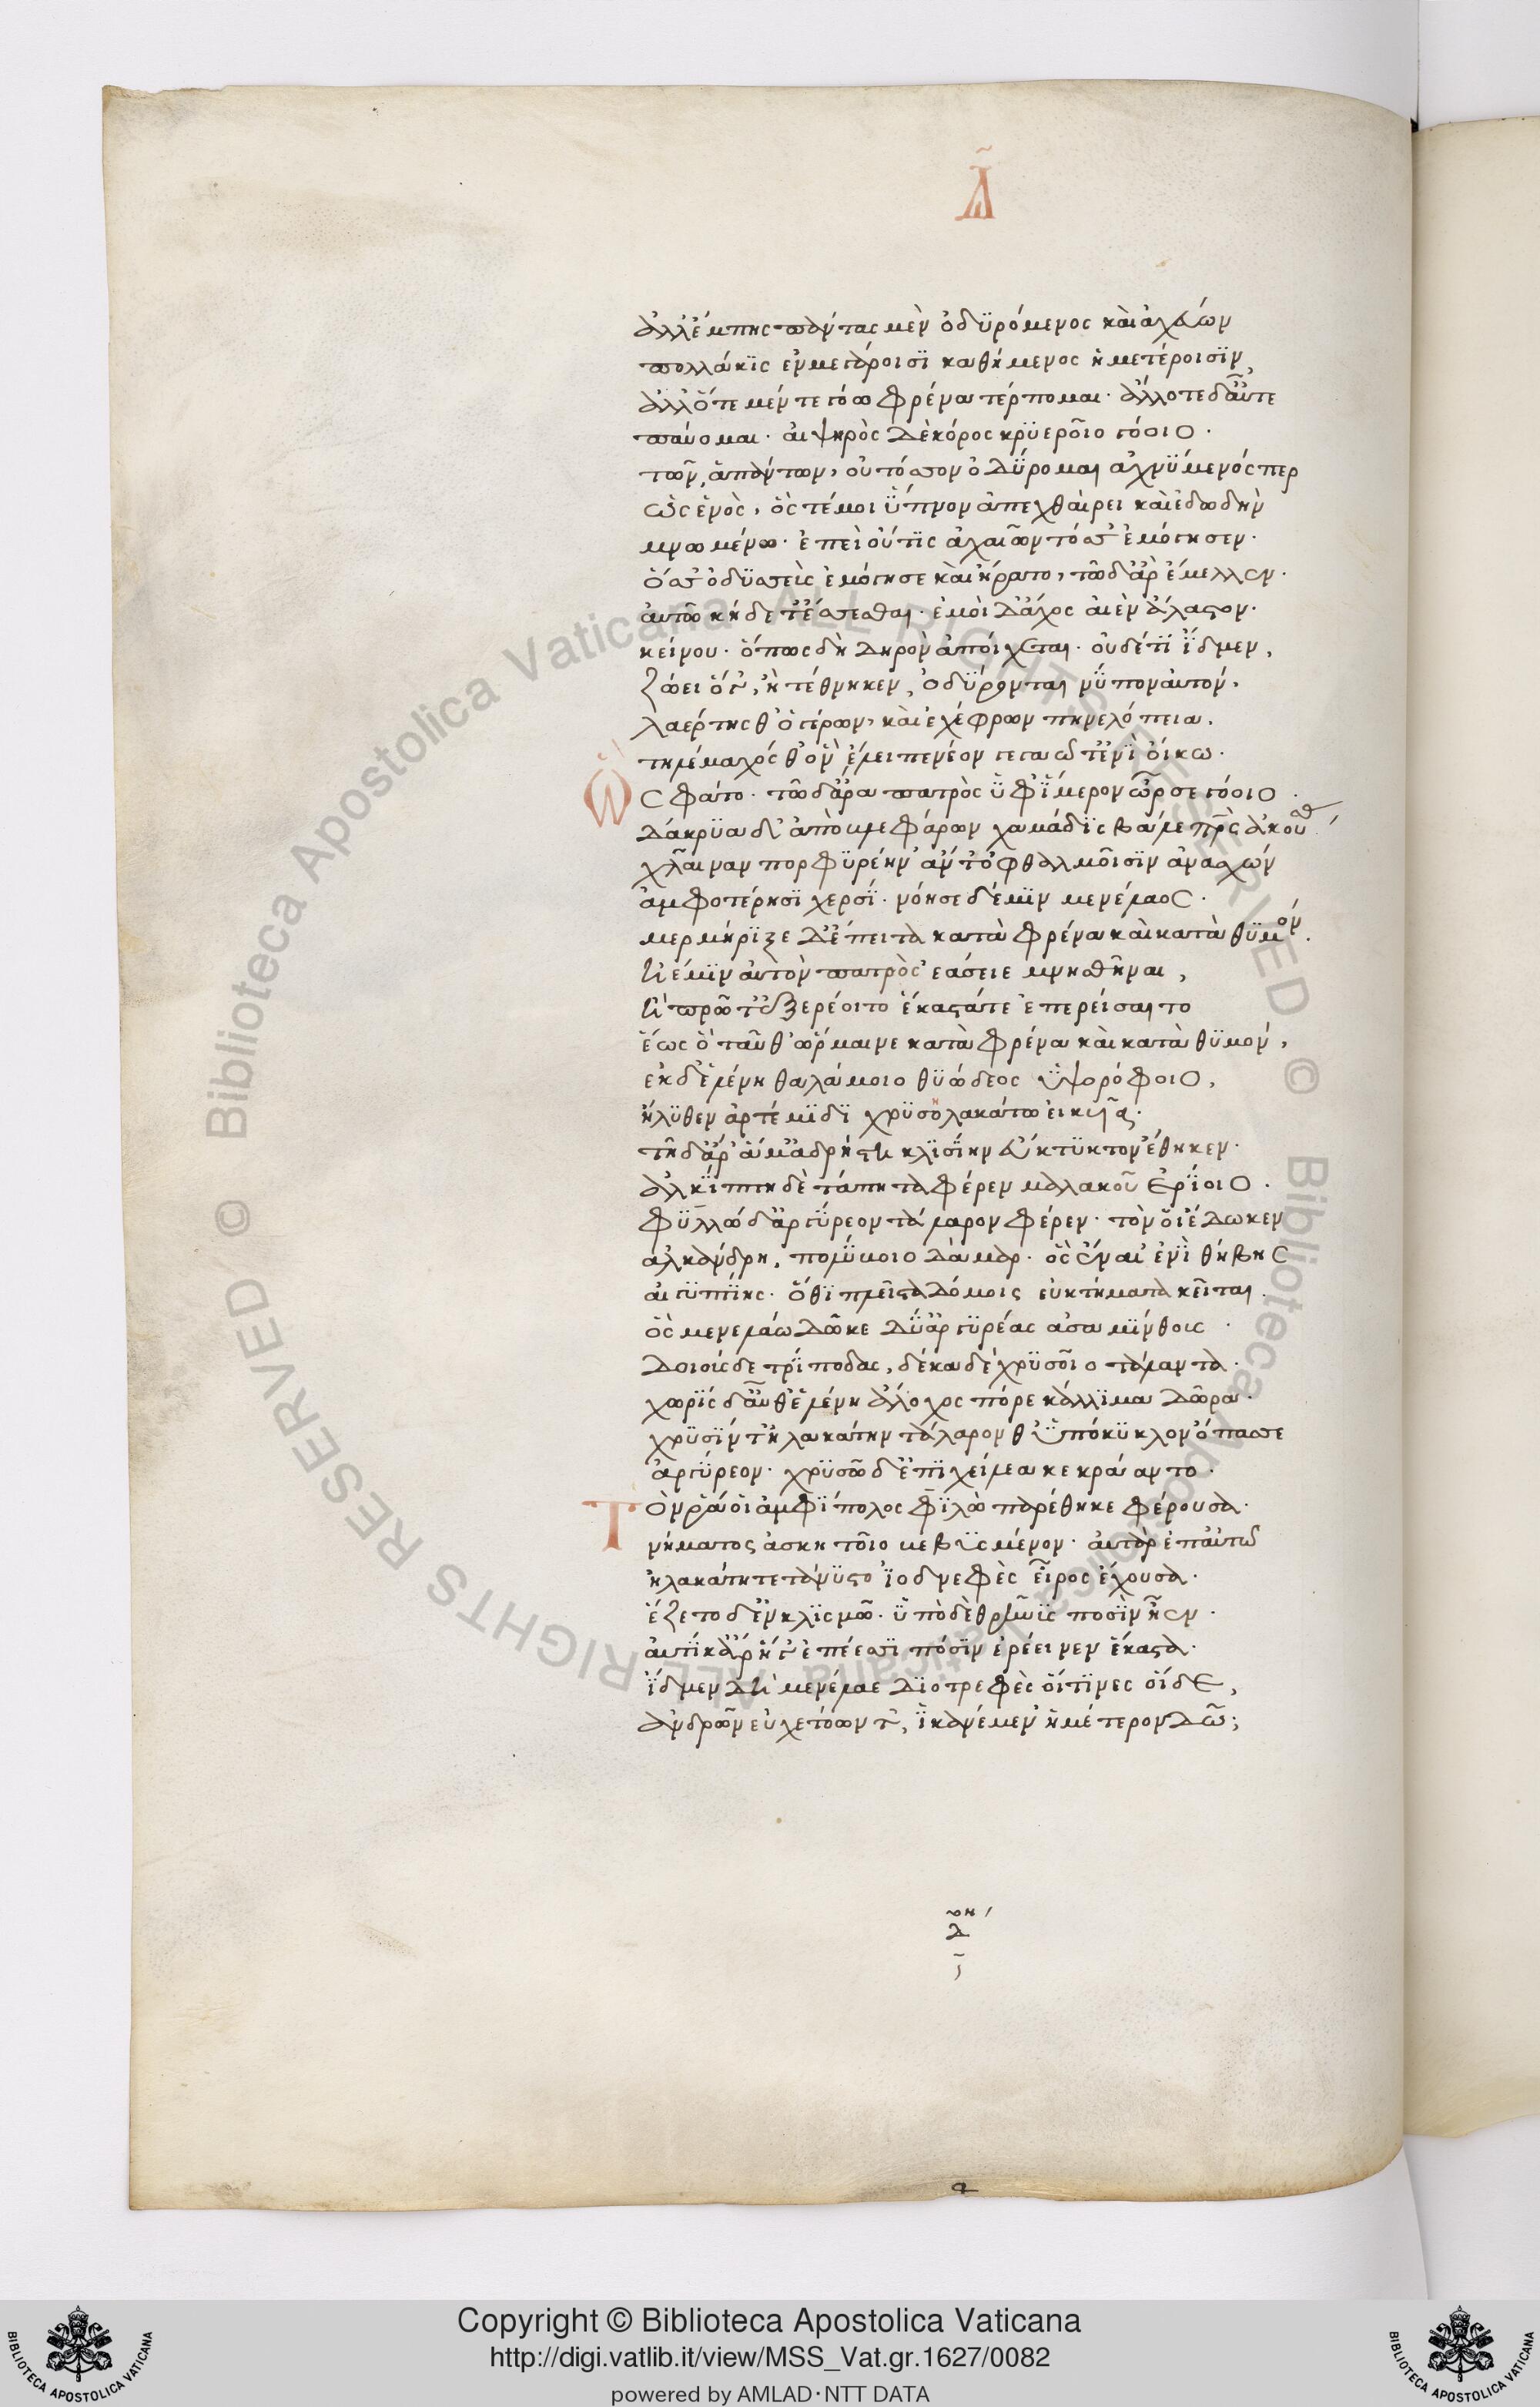 Δ
ἀλλ' ἔμπης πάντας μὲν ὀδυρόμενος καὶ ἀχεύων
πολλάκις ἐν μεγάροισι καθήμενος ἡμετέροισιν
ἄλλοτε μέν τε γόω φρένα τέρπομαι· ἄλλοτε δ' αὖτε
παύομαι· αἰψηρὸς δὲ κόρος κρυεροῖο γόοιο·
τῶν ἁπάντων, οὐ τόσσον ὀδύρομαι ἀχνύμενός περ
ὡς ἑνὸς, ὅς τέ μοι ὕπνον ἀπεχθαίρει καὶ ἐδωδὴν
μνωμένω· ἐπεὶ οὔτις ἀχαιῶν τόσσ' ἐμόγησεν·
ὅσσ' ὀδυσσεὺς ἐμόγησε καὶ ἤρατο, τῶ δ' ἄρ' ἔμελλεν·
αὐτῶ κήδε' ἔσεσθαι· ἐμοὶ δ' ἄχος αἰὲν ἄλαστον·
κείνου· ὅπως δὴ δηρὸν ἀποίχεται· οὐδέ τι ἴδμεν,
ζώει ὅγ', ἢ τέθνηκεν, ὀδύρονται νύ που αὐτόν,
λαέρτης θ' ὁ γέρων, καὶ ἐχέφρων πηνελόπεια,
τηλέμαχός θ' ὃν ἔλειπε νέον γεγαῶτ' ἐνὶ οἴκω·
Ὣς φάτο· τῶ δ' ἄρα πατρὸς ὑφ' ἵμερον ὦρσε γόοιο·
δάκρυα δ' ἀπὸ βλεφάρων χαμάδις βάλε πατρὸς ἀκούσας
χλαῖναν πορφυρέην ἄντ' ὀφθαλμοῖσιν ἀνασχών
ἀμφοτέρησι χερσί· νόησε δέ μιν μενέλαος·
μερμήριξε δ' ἔπειτα κατὰ φρένα καὶ κατὰ θυμόν·
ἠέ μιν αὐτὸν πατρὸς ἐάσειε μνησθῆναι,
ἢ πρῶτ' ἐξερέοιτο ἕκαστά τε πειρήσαιτο
ἕως ὁ ταῦθ' ὥρμαινε κατὰ φρένα καὶ κατὰ θυμόν,
ἐκ δ' ἑλένη θαλάμοιο θυώδεος ὑψορόφοιο,
ἤλυθεν ἀρτέμιδι χρυσολακάτω εἰκυῖα·
τῆ δ' ἄρ' ἅμ' ἀδρήστη κλισίην εὔκτυκτον ἔθηκεν·
ἀλκίππη δὲ τάπητα φέρεν μαλακοῦ ἐρίοιο·
φυλλὼ δ' ἀργύρεον τάλαρον φέρεν· τόν οἱ ἔδωκεν
ἀλκάνδρη, πολύβοιο δάμαρ· ὃς ἔναι' ἐνὶ θήβης
αἰγυπτίης· ὅθι πλεῖστα δόμοις ἐν κτήματα κεῖται·
ὃς μενελάω δῶκε δύ' ἀργυρέας ἀσαμίνθους·
δοιοὺς δὲ τρίποδας, δέκα δὲ χρυσοῖο τάλαντα·
χωρὶς δ' αὖθ' ἑλένη ἄλοχος πόρε κάλλιμα δῶρα·
χρυσῆν τ' ἠλακάτην τάλαρον θ' ὑπόκυκλον ὄπασσε
ἀργύρεον· χρυσῶ δ' ἐπὶ χείλεα κεκράαντο·
Τόν ῥά οἱ ἀμφίπολος φυλὼ παρέθηκε φέρουσα·
νήματος ἀσκητοῖο βεβυσμένον· αὐτὰρ ἐπ' αὐτῶ
ἠλακάτη τετάνυστο ἰοδνεφὲς εἶρος ἔχουσα·
ἕζετο δ' ἐν κλισμῶ· ὑπὸ δὲ θρῆνυς ποσὶν ἦεν·
αὐτίκα δ' ἥγ' ἐπέεσσι πόσιν ἐρέεινεν ἕκαστα·
ἴδμεν δὴ μενέλαε διοτρεφὲς οἵτινες οἵδε,
ἀνδρῶν εὐχετόωντ', ἱκανέμεν ἡμέτερον δῶ;
Copyright © Biblioteca Apostolica Vaticana
http://digi.vatlib.it/view/MSS_Vat.gr.1627/0082
powered by AMLAD·NTT DATA